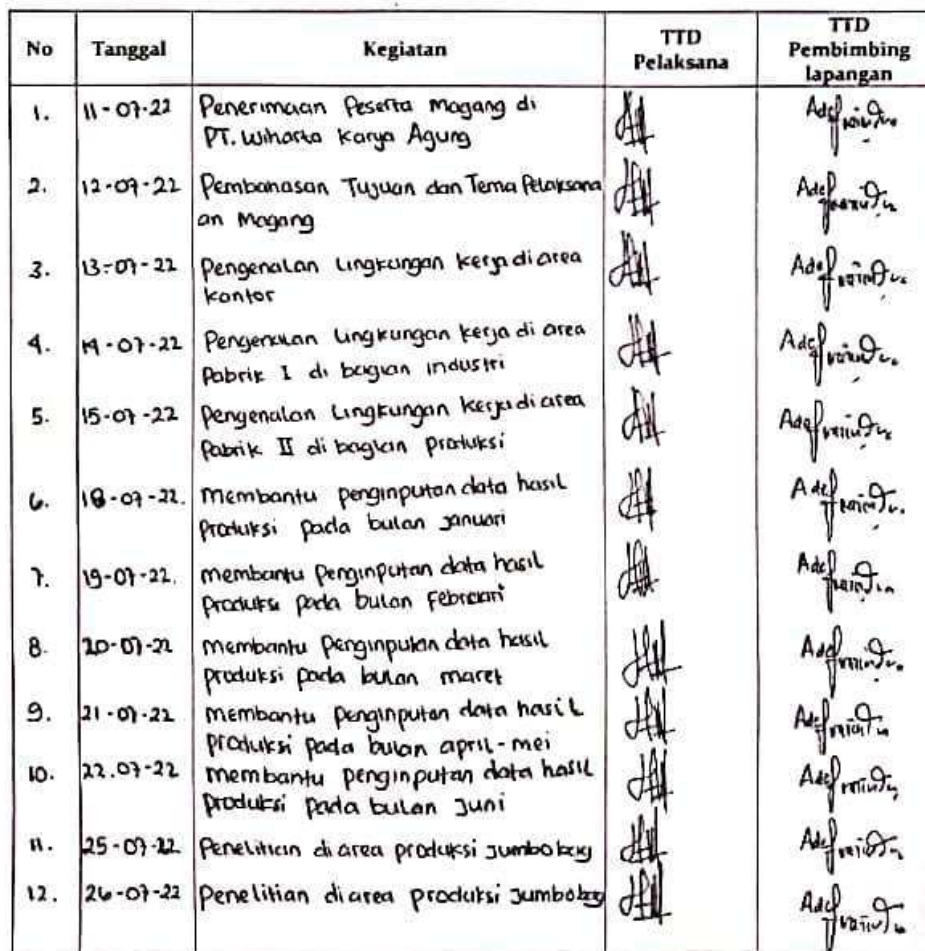 No Tanggal Kegiatan TTD Pelaksana TTD Pembimbing lapangan
1. 11-07-22 Penerimaan Peserta Magang di
PT. Wiharta Karya Agung
2. 12-07-22 Pembahasan Tujuan dan Tema Pelaksana
an Magang
3. 13-07-22 Pengenalan Lingkungan kerja di area
kantor
4. 14-07-22 Pengenalan Lingkungan kerja di area
Pabrik I di bagian industri
5. 15-07-22 Pengenalan Lingkungan kerja di area
Pabrik II di bagian Produksi
6. 18-07-22. membantu penginputan data hasil
Produksi pada bulan Januari
7. 19-07-22. membantu Penginputan data hasil
Produksi pada bulan Februari
8. 20-07-22 membantu Penginputan data hasil
produksi pada bulan maret
9. 21-07-22 membantu Penginputan data hasil
produksi pada bulan april-mei
10. 22.07-22 membantu penginputan data hasil
produksi pada bulan Juni
11. 25-07-22 Penelitian di area produksi Jumbo bag
12. 26-07-22 Penelitian di area produksi Jumbo bag